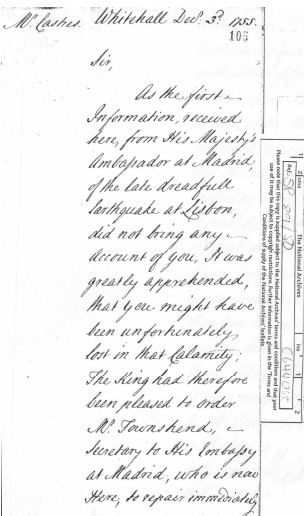 Mr. Castres. Whitehall Decr. 3d. 1755.
Sir,
As the first
Information, received
here, from His Majesty's
Ambassador at Madrid,
of the late dreadfull
Earthquake at Lisbon,
did not bring any
Account of you, It was
greatly apprehended,
that you might have
been unfortunately
lost in that Calamity;
The King had therefore
been pleased to order
Mr. Townshend,
Secretary to His Embassy
at Madrid, who is now
Here, to repair immediately
The National Archives
ins
1
2
Please note that this copy is supplied subject to the National Archives' terms and conditions and that your
use of it may be subject to copyright restrictions. Further information is given in the 'Terms and
Conditions of supply of the National Archives' leaflets